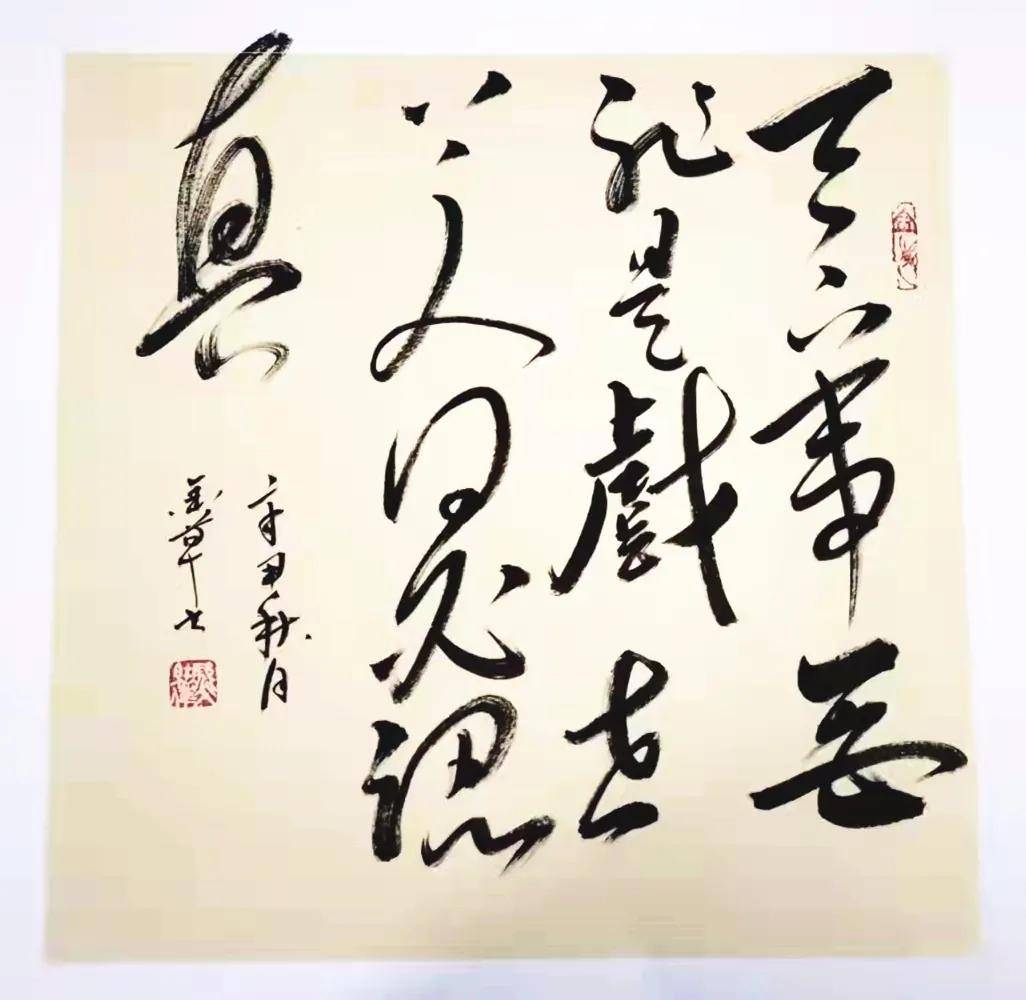 天下事無
非是戲世
間人何必認
真
辛丑秋月